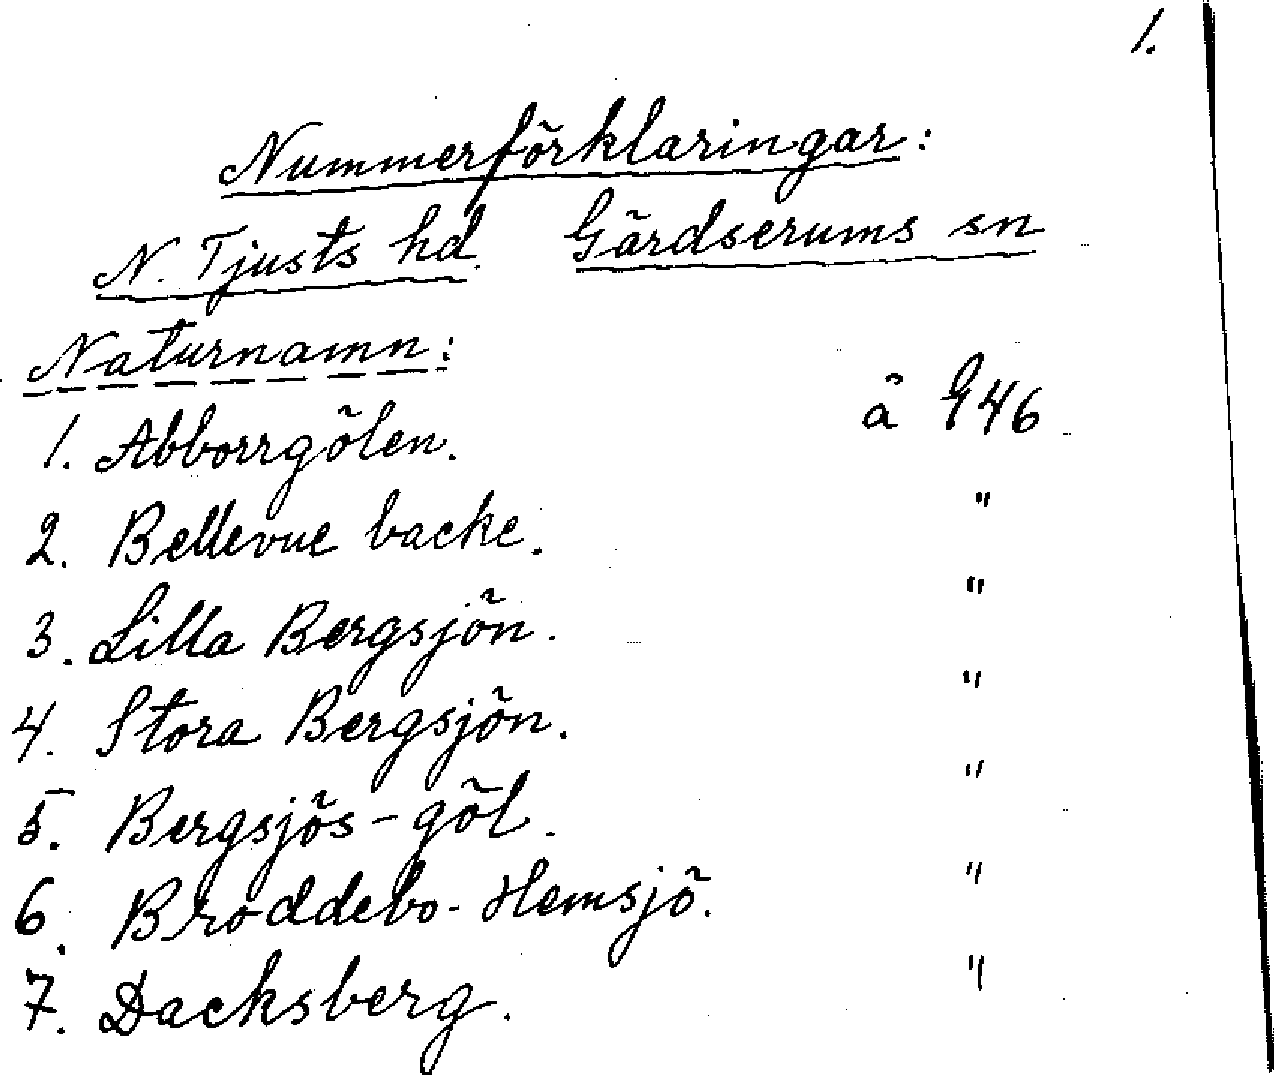 1.
Nummerförklaringar:
N. Tjusts hd. Gärdserums sn
Naturnamn:
1. Abborrgölen. å 946
2. Bellevue backe. "
3. Lilla Bergsjön. "
4. Stora Bergsjön. "
5. Bergsjös-göl. "
6. Broddebo-Hemsjö. "
7. Dacksberg. "